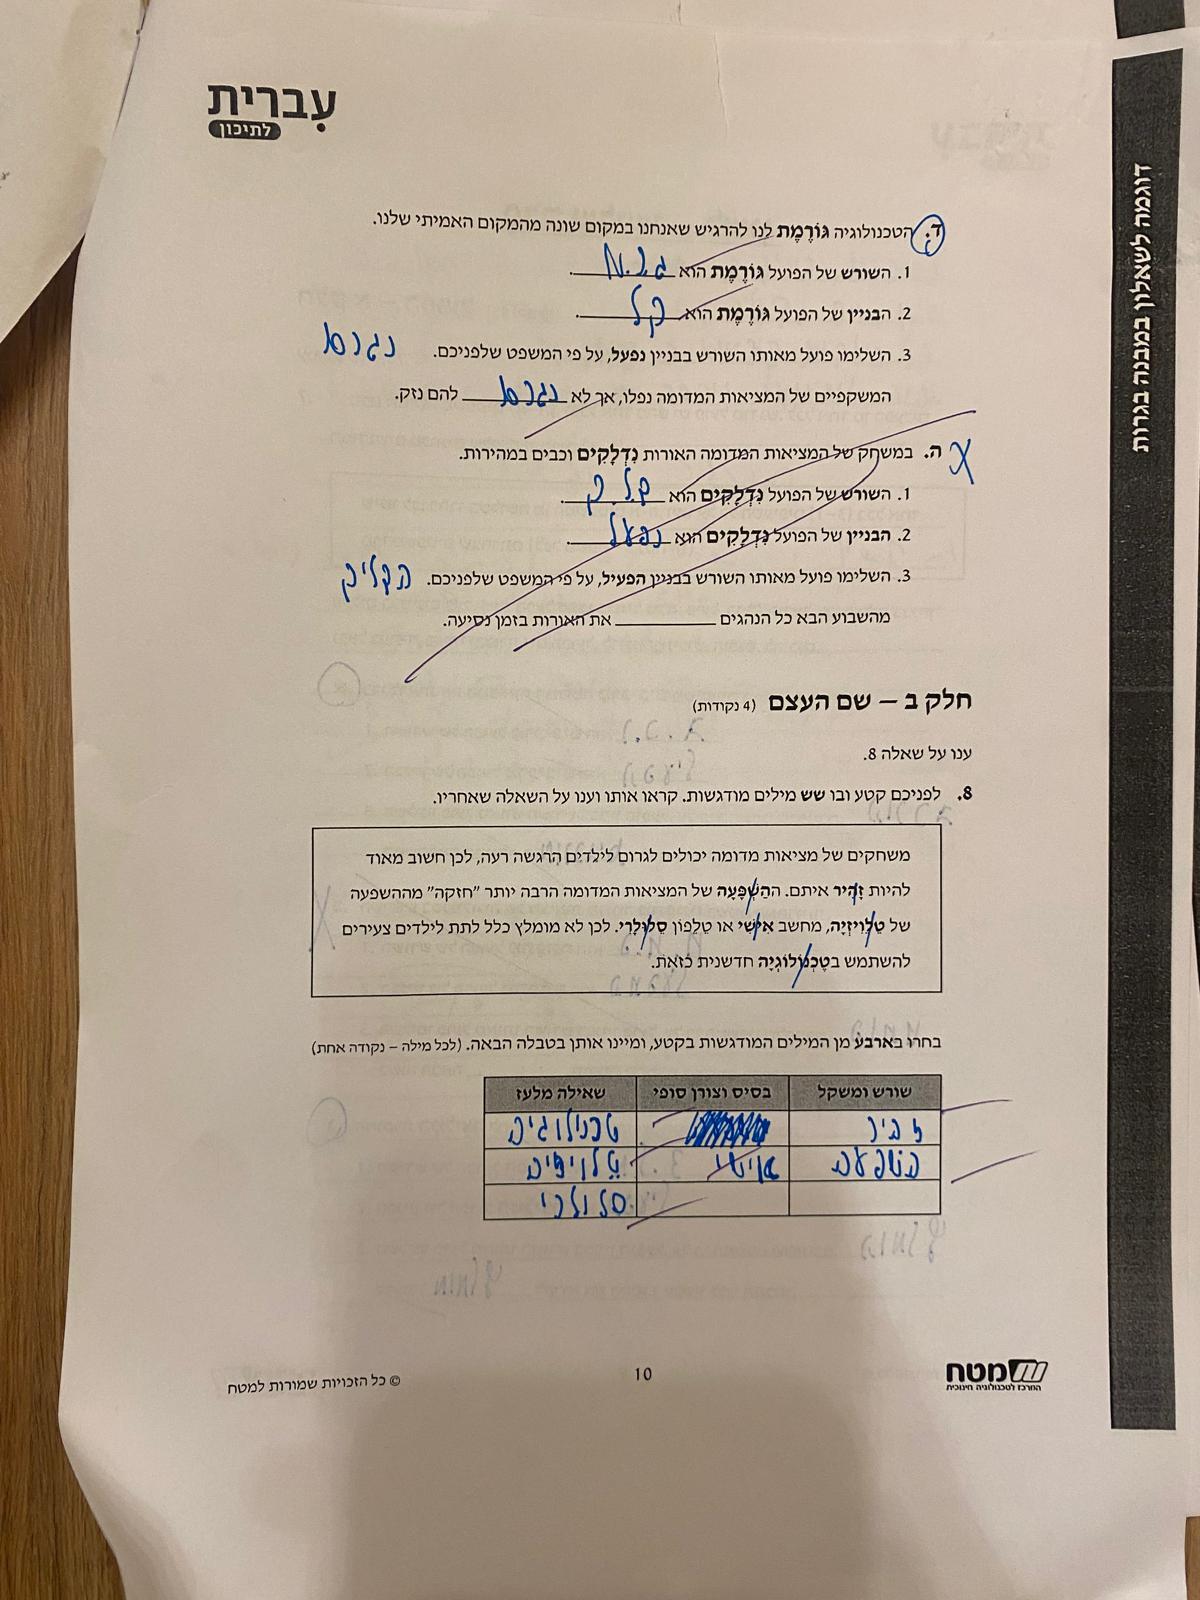 עִברית
לתיכון
דוגמה לשאלון במבנה בגרות
ד. הטכנולוגיה גּוֹרֶמֶת לנו להרגיש שאנחנו במקום שונה מהמקום האמיתי שלנו.
1. השורש של הפועל גּוֹרֶמֶת הוא ג.ר.מ.
2. הבניין של הפועל גּוֹרֶמֶת הוא קל.
3. השלימו פועל מאותו השורש בבניין נפעל, על פי המשפט שלפניכם. נגרם
המשקפיים של המציאות המדומה נפלו, אך לא נגרם להם נזק.
ה. במשחק של המציאות המדומה האורות נִדְלָקִים וכבים במהירות. X
1. השורש של הפועל נִדְלָקִים הוא ד.ל.ק.
2. הבניין של הפועל נִדְלָקִים הוא נפעל.
3. השלימו פועל מאותו השורש בבניין הפעיל, על פי המשפט שלפניכם. הדליק
מהשבוע הבא כל הנהגים ________ את האורות בזמן נסיעה.
חלק ב – שם העצם (4 נקודות)
ענו על שאלה 8.
8. לפניכם קטע ובו שש מילים מודגשות. קראו אותו וענו על השאלה שאחריו.
משחקים של מציאות מדומה יכולים לגרום לילדים הרגשה רעה, לכן חשוב מאוד
להיות זָהִיר איתם. הַהַשְׁפָּעָה של המציאות המדומה הרבה יותר "חזקה" מההשפעה
של טֵלֵוִיזְיָה, מחשב אִישִׁי או טלפון סֵלוּלָרִי. לכן לא מומלץ כלל לתת לילדים צעירים
להשתמש בטֶכְנוֹלוֹגְיָה חדשנית כזאת.
בחרו בארבע מן המילים המודגשות בקטע, ומיינו אותן בטבלה הבאה. (לכל מילה – נקודה אחת)
שורש ומשקל בסיס וצורן סופי שאילה מלעז
זהיר טכנילוגיה
השפעה אישי טלויזיה
סלולרי
מטח
המרכז לטכנולוגיה חינוכית
10
© כל הזכויות שמורות למטח